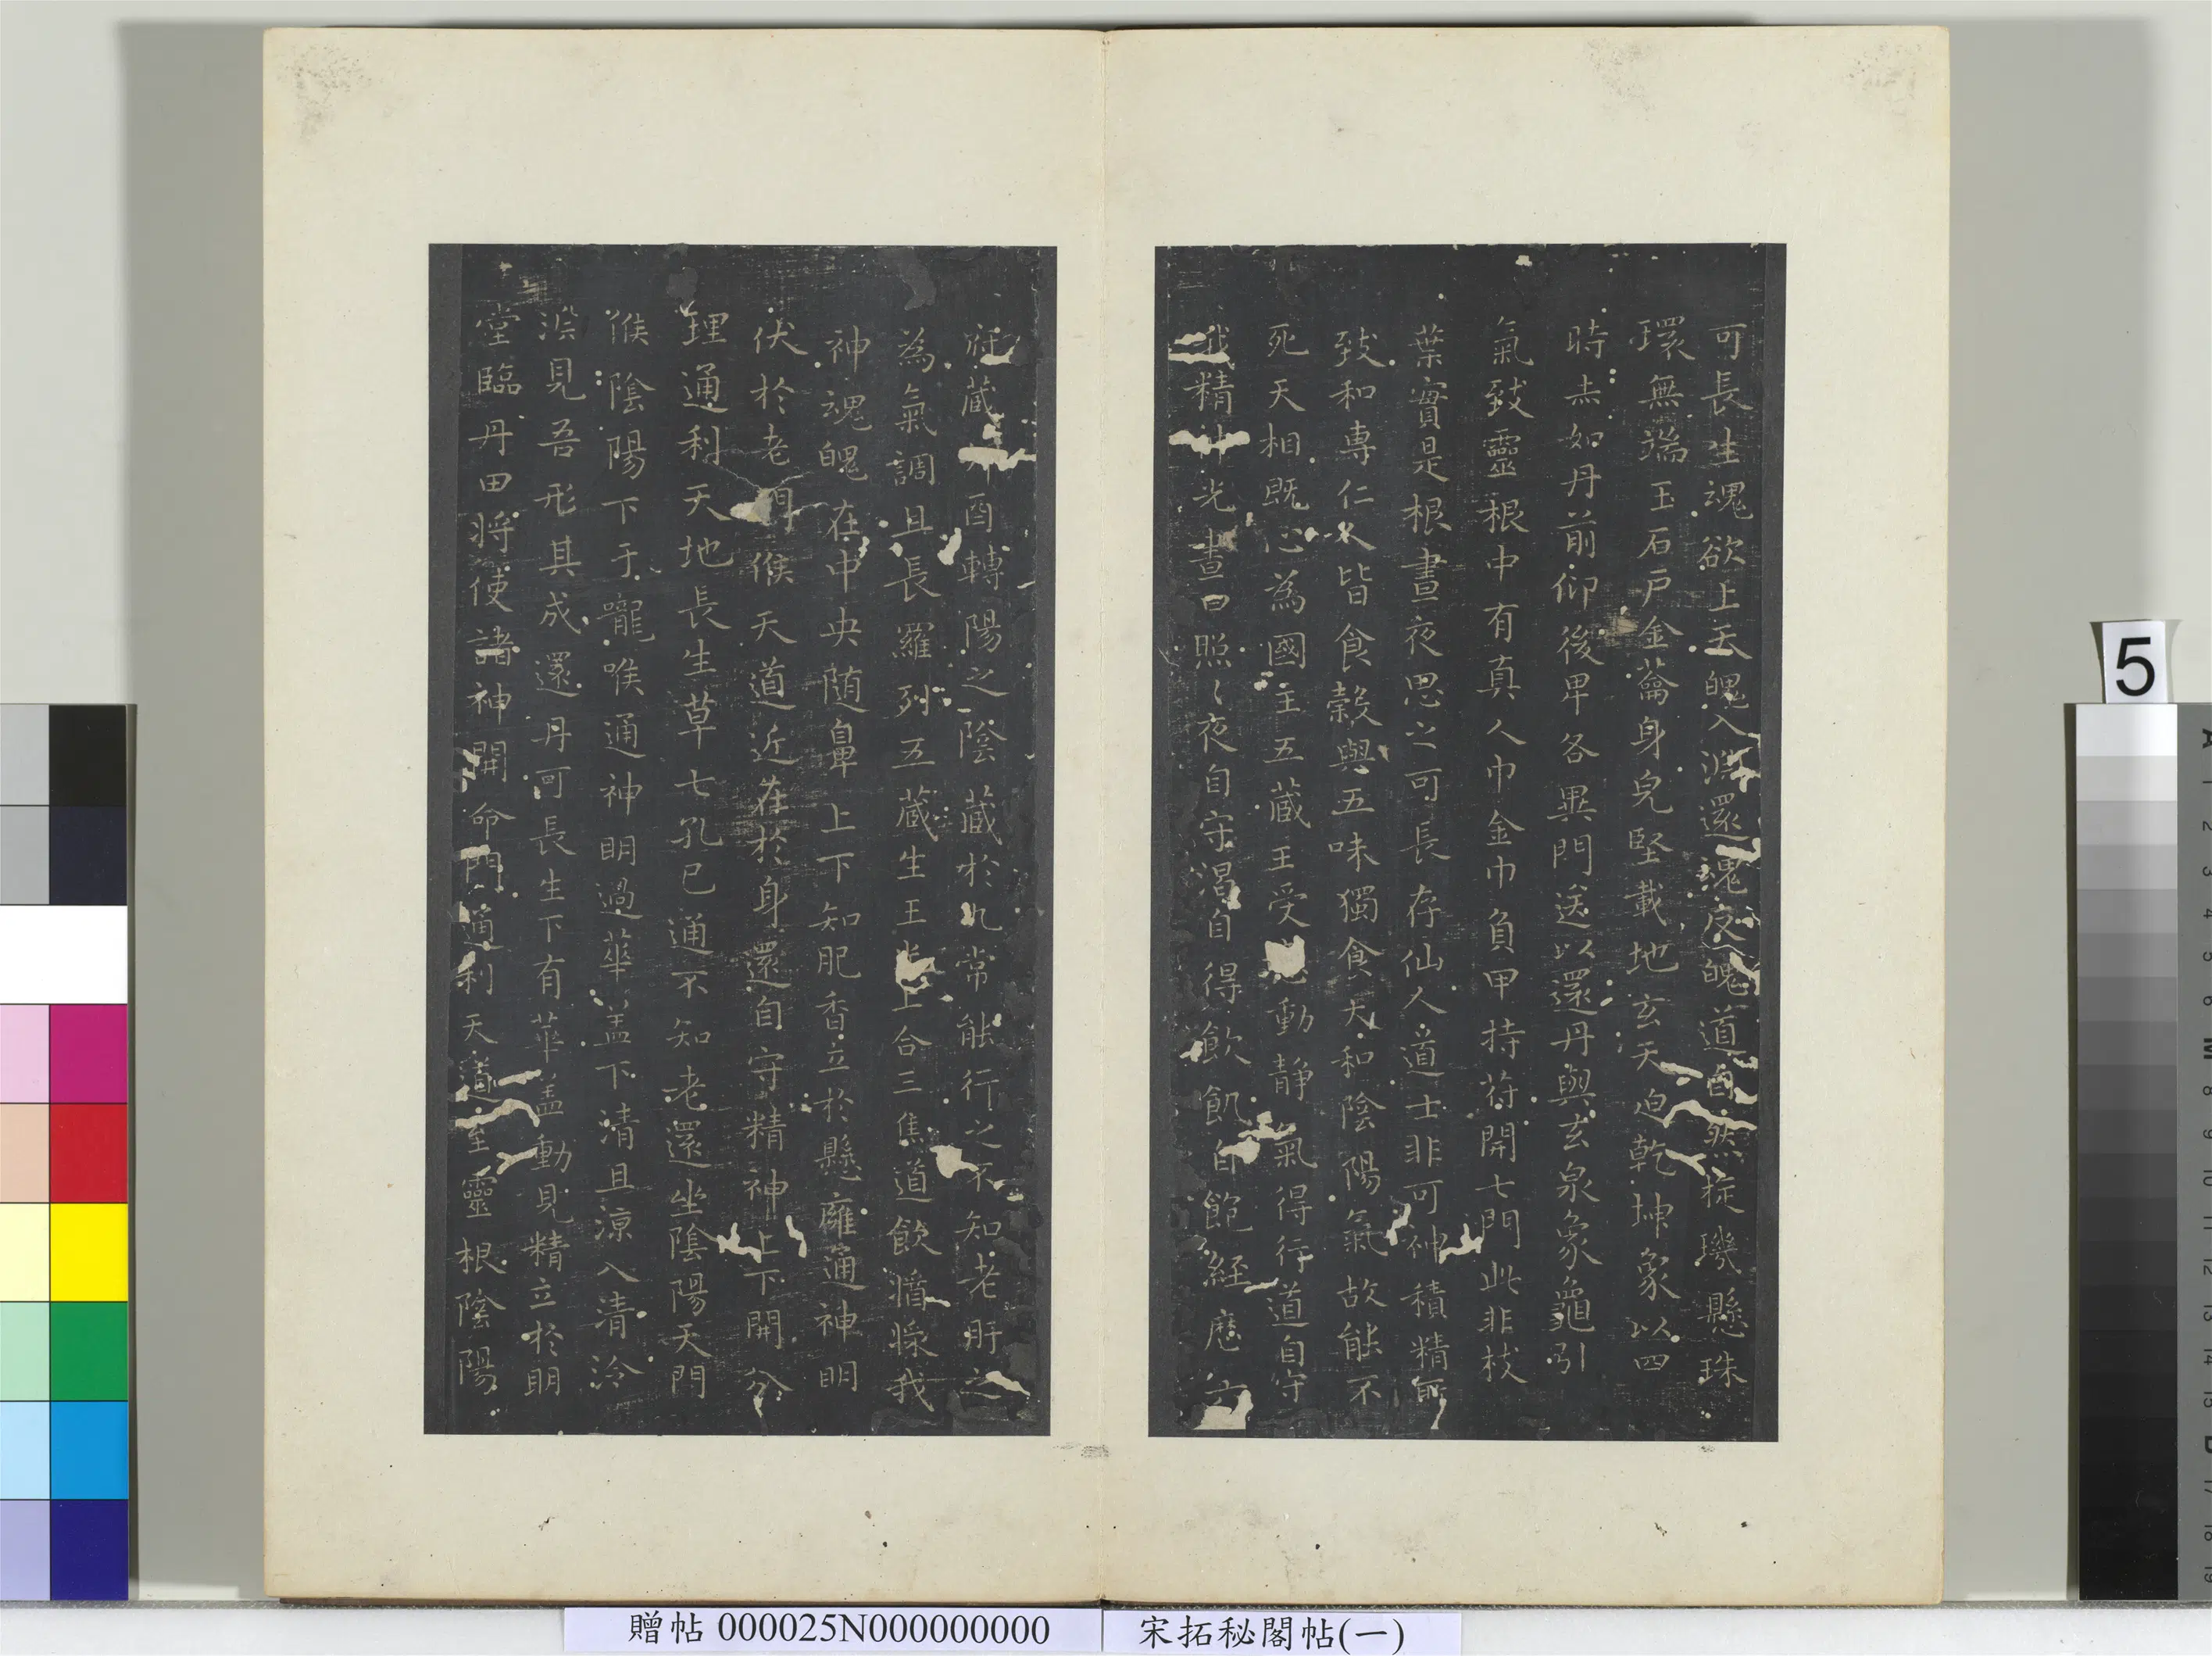 可長生魂欲上天魄入淵還魂反魄道自然旋璣懸珠
環無端玉石戶金籥身皃堅載地玄天迫乾坤象以四
時赤如丹前仰後卑各異門送以還丹與玄泉象龜引
氣致靈根中有真人巾金巾負甲持苻開七門此非枝
葉實是根晝夜思之可長存仙人道士非可神積精所
致和專仁人皆食穀與五味獨食太和陰陽氣故能不
死天相既心為國主五藏王受意動靜氣得行道自守
我精神光晝日照〻夜自守渴自得飲飢自飽經歷六
府藏卯酉轉陽之陰藏於九常能行之不知老肝之
為氣調且長羅列五藏生三光上合三焦道飲醬漿我
神魂魄在中央随鼻上下知肥香立於懸廱通神明
伏於老門候天道近在於身還自守精神上下開分
理通利天地長生草七孔已通不知老還坐陰陽天門
候陰陽下于嚨喉通神明過華蓋下清且涼入清泠
淵見吾形其成還丹可長生下有華蓋動見精立於明
堂臨丹田將使諸神開命門通利天道至靈根陰陽
贈帖 000025N000000000
宋拓秘閣帖(一)
5